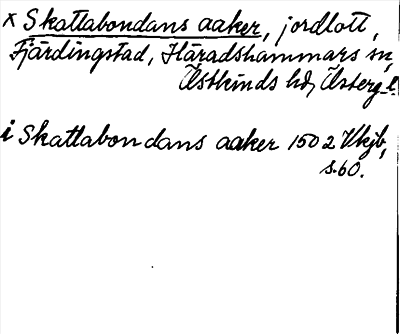 x Skattabondans aaker, jordlott,
Fjärdingstad, Häradshammars sn,
Östkinds hd, Österg. l.
i Skattabondans aaker 1502 Vkjb,
s. 60.